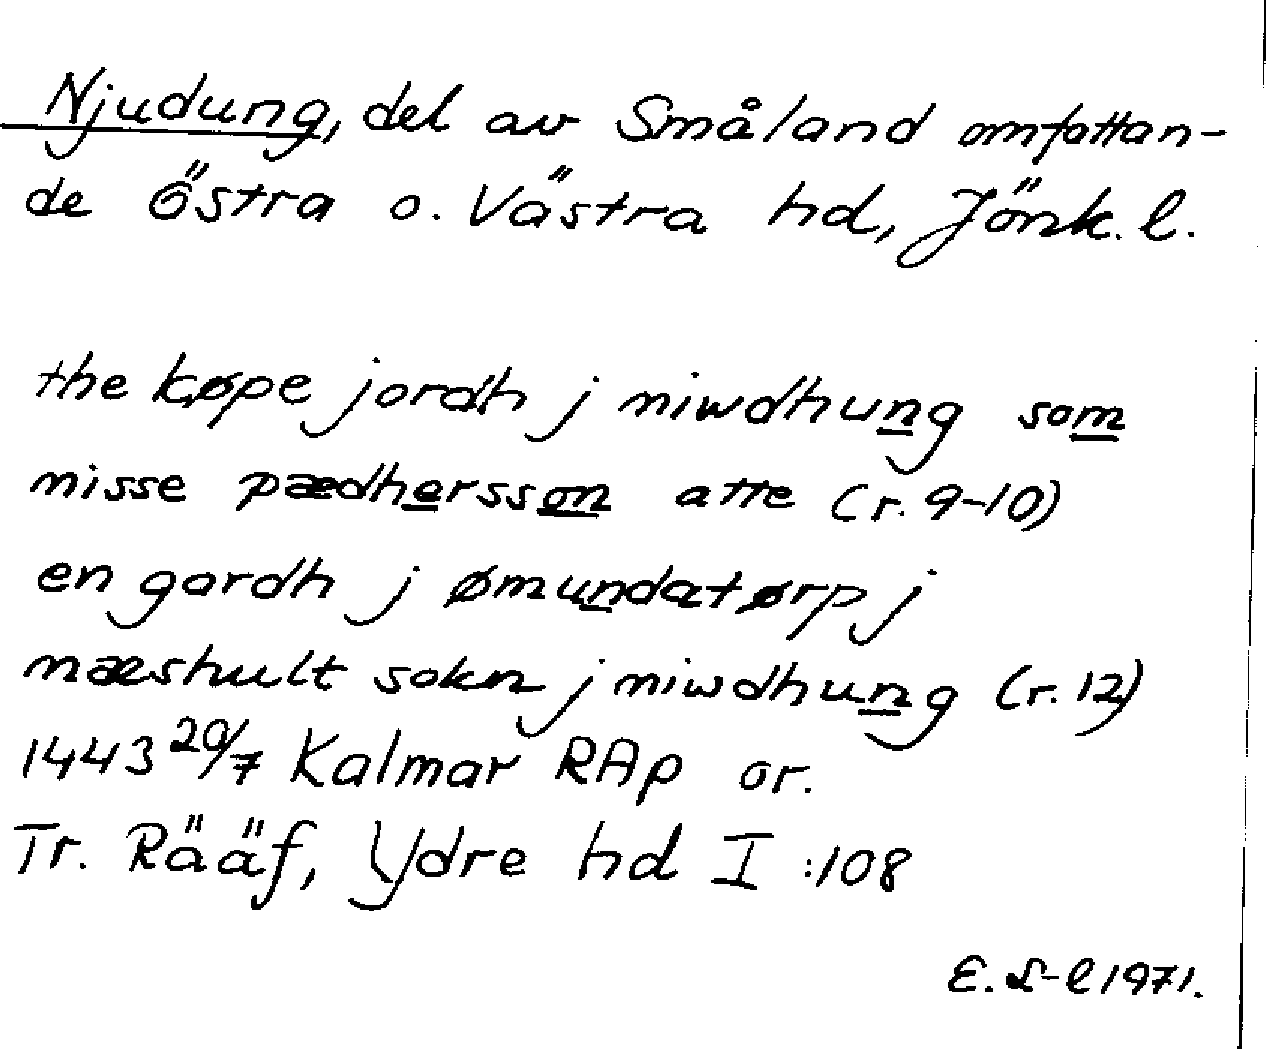 Njudung, del av Småland omfattan-
de Östra o. Västra hd, Jönk. l.
the køpe jordh j niwdhung som
nisse pædhersson atte (r. 9-10)
en gardh j ømundatørp j
næshult sokn j niwdhung (r. 12)
1443 20/7 Kalmar RAp or.
Tr. Rääf, Ydre hd I :108
E. S-l 1971.